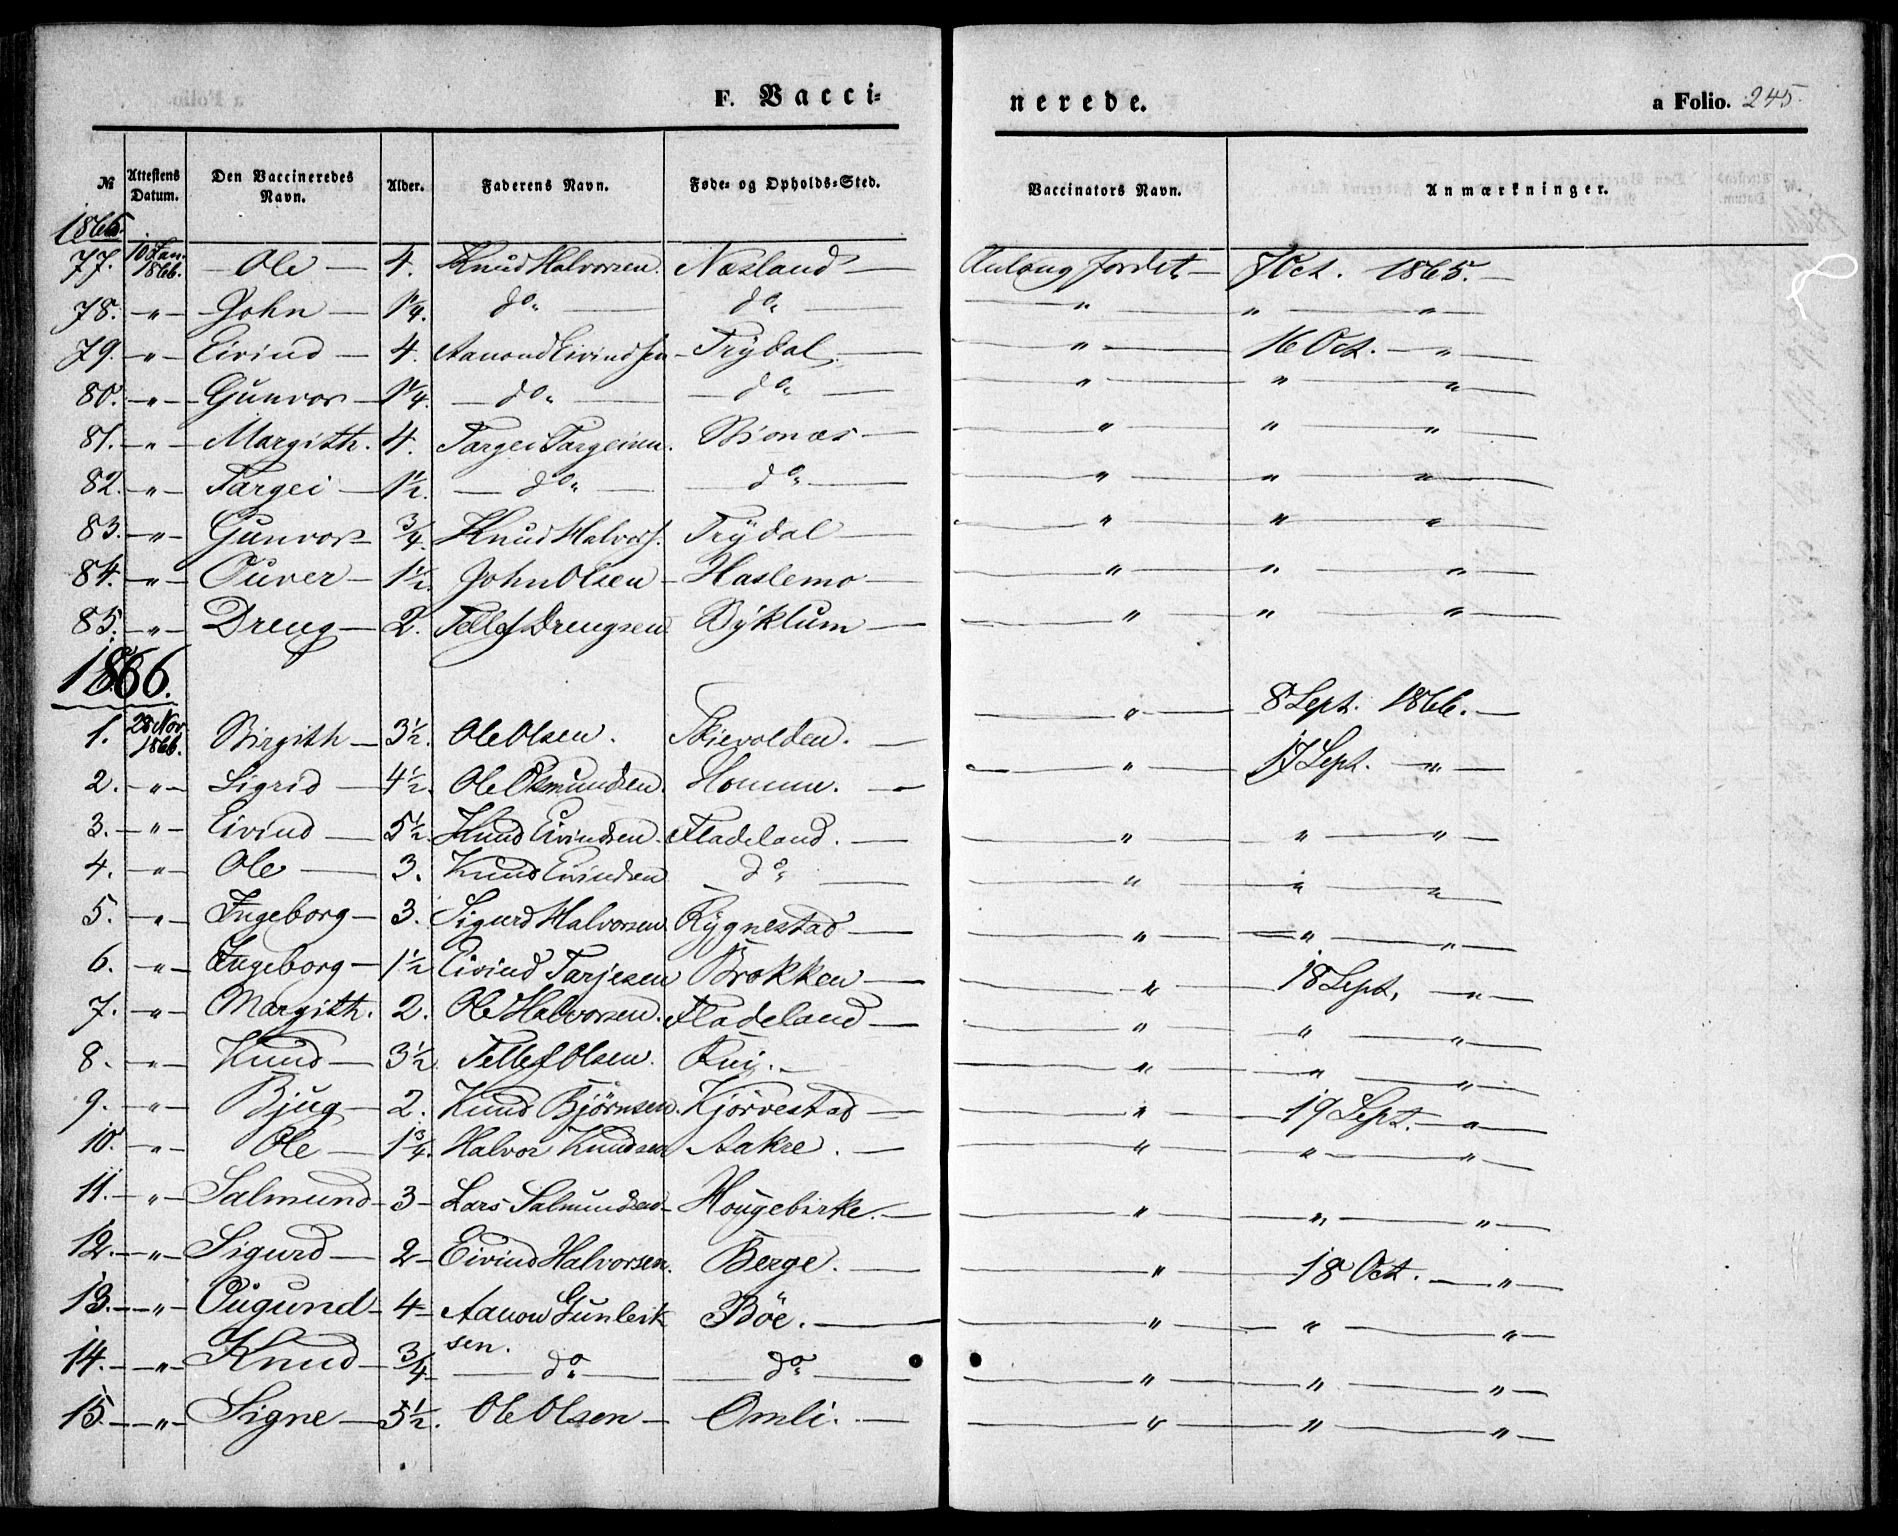 F. Vacci-
nerede.
a Folio. 245.
№ Attestens Datum. Den Vaccineredes Navn. Alder. Faderens Navn. Føde- og Opholds-Sted. Vaccinators Navn. Anmærkninger.
1865.
77. 10 Jan. 1866. Ole 4. Knud Halvorsen. Næsland 7 Oct. 1865.
78. " John 1¼. do " do " " " "
79. " Eivind 4. Aanond Eivindsen Trydal. " 16 Oct. "
80. " Gunvor 1¼. do " do " " " "
81. " Margith. 4. Targei Targeisen. Bjonæs " " "
82. " Targei 1½. do " do " " " "
83. " Gunvor ¾. Knud Halvors. Trydal " " "
84. " Ouver 1½. John Olsen Haslemo " " "
85. " Dreng 2. Tellef Drengsen Dyklum " " "
1866.
1. 28 Nov. 1866. Birgith 3½. Ole Olsen. Skievolden. " 8 Sept. 1866.
2. " Sigrid 4½. Ole Osmundsen. Homme. " 17 Sept. "
3. " Eivind 5½. Knud Eivindsen. Fladeland. " " "
4. " Ole 3. Knud Eivindsen do " " " "
5. " Ingeborg 3. Sigurd Halvorsen Rygnestad " " "
6. " Ingeborg 1½ Eivind Tarjesen Brokken " 18 Sept. "
7. " Margith. 2. Ole Halvorsen. Fladeland " " "
8. " Knud 3½ Tellef Olsen. Rui. " " "
9. " Bjug 2. Knud Bjørnsen. Kjørvestad " 19 Sept. "
10. " Ole 1¾. Halvor Knudsen Aakre. " " "
11. " Salmund 3 Lars Salmundsen Hougebirke. " " "
12. " Sigurd 2 Eivind Halvorsen. Berge. " 18 Oct. "
13. " Ougund 4 Aanon Gunleik
sen. Böe. " " "
14. " Knud ¾ do " do " " " "
15. " Signe 5½. Ole Olsen Omli. " " "